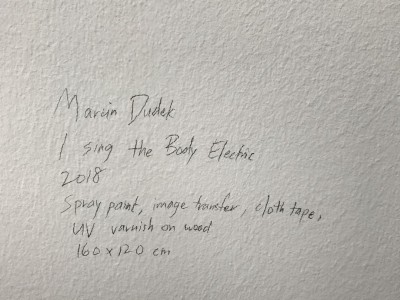 Marcin Dudek
I sing the Body Electric
2018
Spray paint, image transfer, cloth tape,
UV varnish on wood
160x120 cm